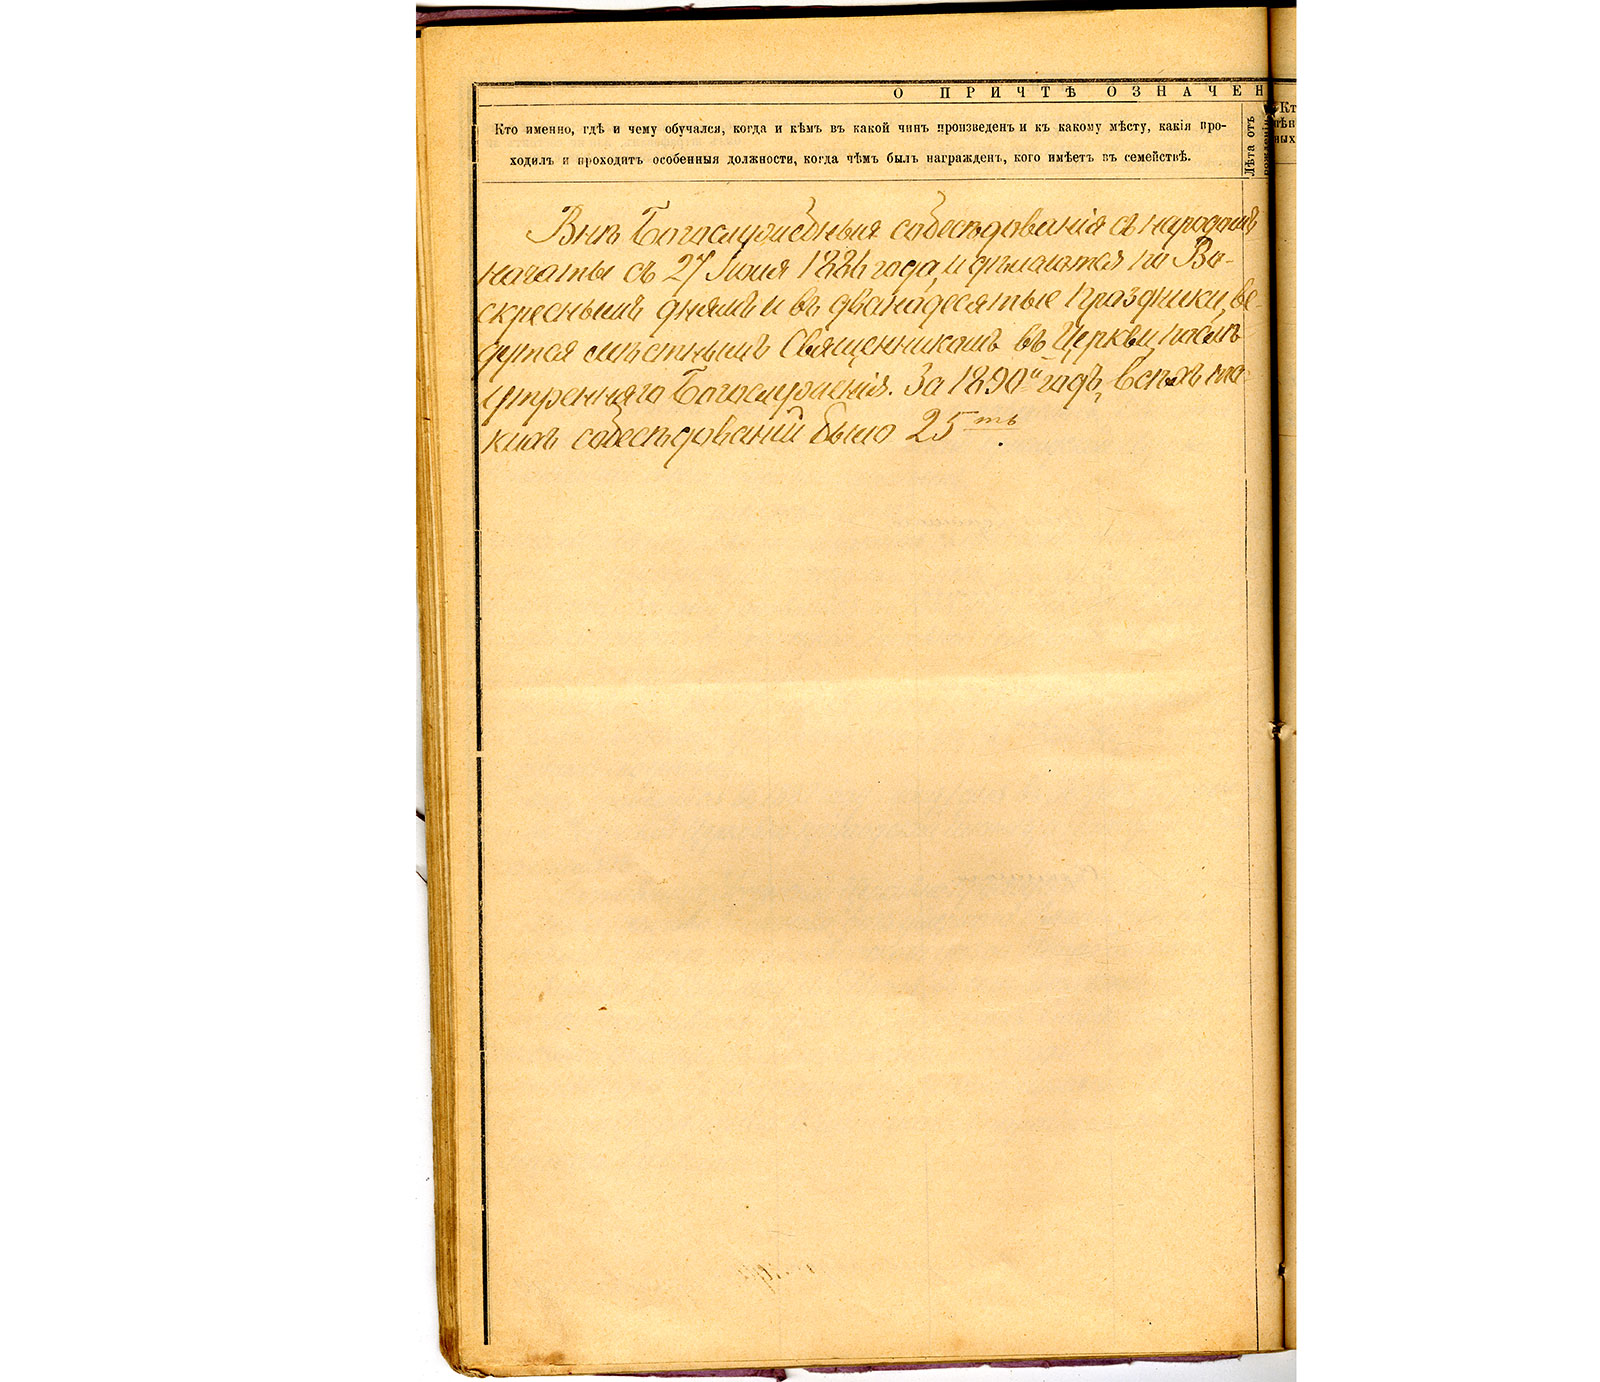 О ПРИЧТѢ ОЗНАЧЕН
Кто именно, гдѣ и чему обучался, когда и кѣмъ въ какой чинъ произведенъ и къ какому мѣсту, какія про-
ходилъ и проходитъ особенныя должности, когда чѣмъ былъ награжденъ, кого имѣетъ въ семействѣ.
Лѣта отъ
Внѣ Богослужебныя собесѣдованія съ народомъ
начаты съ 27 Іюля 1886 года, и дѣлаются по Во-
скреснымъ днямъ и въ дванадесятые праздники, ве-
дутся мѣстнымъ Священникомъ въ Церкви, послѣ
утренняго Богослуженія. За 1890й годъ, всѣхъ та-
кихъ собесѣдованій было 25ть.